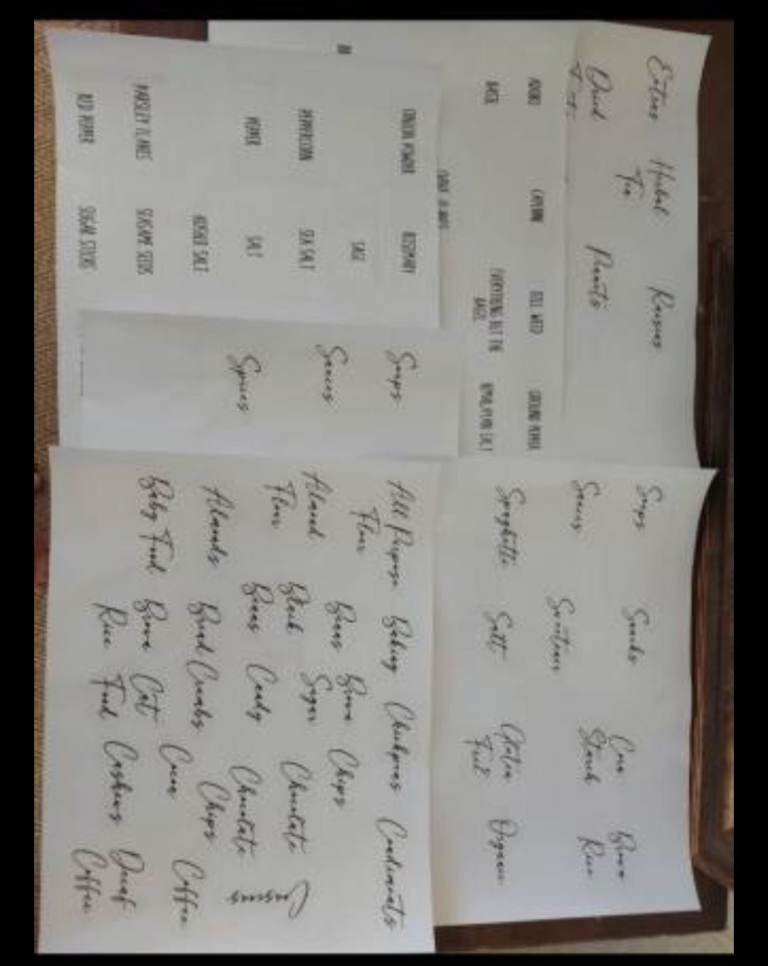 Extras Herbal Tea Raisins
Dried
Peanuts
ADOBO CAYENNE DILL WEED GROUND PEPPER
BASIL EVERYTHING BUT THE BAGEL HIMALAYAN SALT
ONION POWDER ROSEMARY
SAGE
PEPPERCORN SEA SALT
PEPPER SALT
KOSHER SALT
PARSLEY FLAKES SESAME SEEDS
RED PEPPER SUGAR STICKS
Soups
Sauces
Spices
Soups Snacks Corn Starch Brown Rice
Sauces Sweetener
Spaghetti Salt Gluten Free Organic
All Purpose Flour Baking Chickpeas Condiments
Almond Flour Beans Brown Sugar Chips
Black Beans Candy Chocolate
Almonds Bread Crumbs Chocolate Chips
Baby Food Brown Rice Cat Food Corn Coffee
Cashews Decaf Coffee